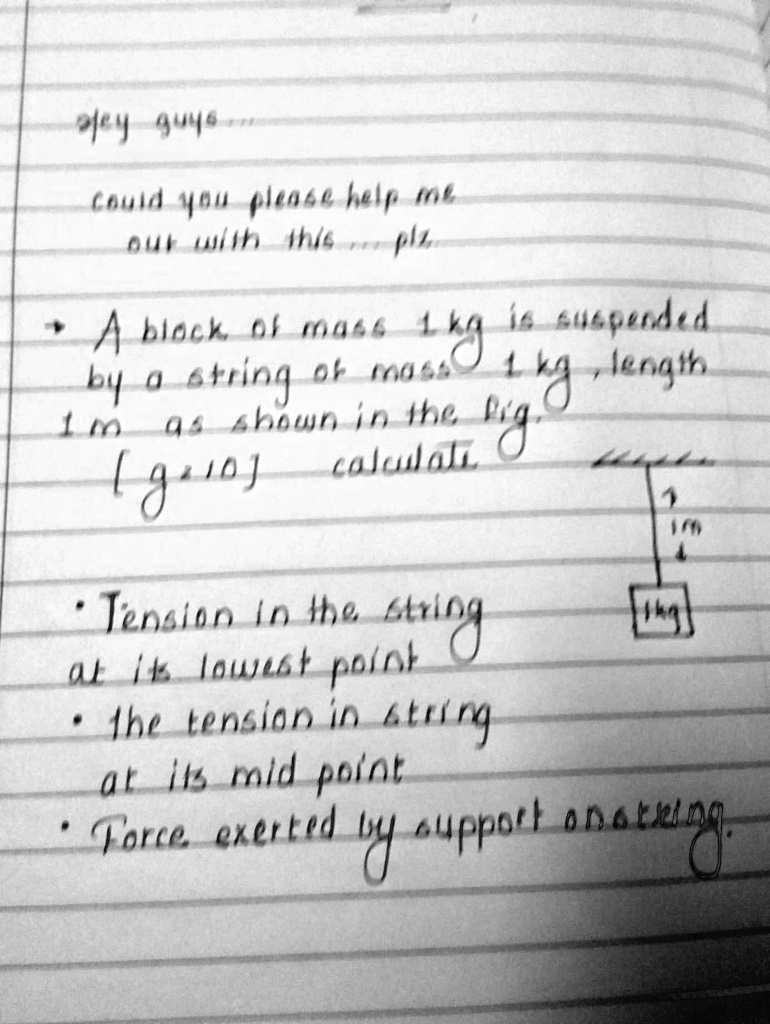 Hey guys...
could you please help me
out with this ... plz
→ A block of mass 1 kg is suspended
by a string of mass 1 kg, length
1 m as shown in the fig.
[g=10] calculate
1m
1kg
• Tension in the string
at its lowest point
• the tension in string
at its mid point
• Force exerted by support on string.